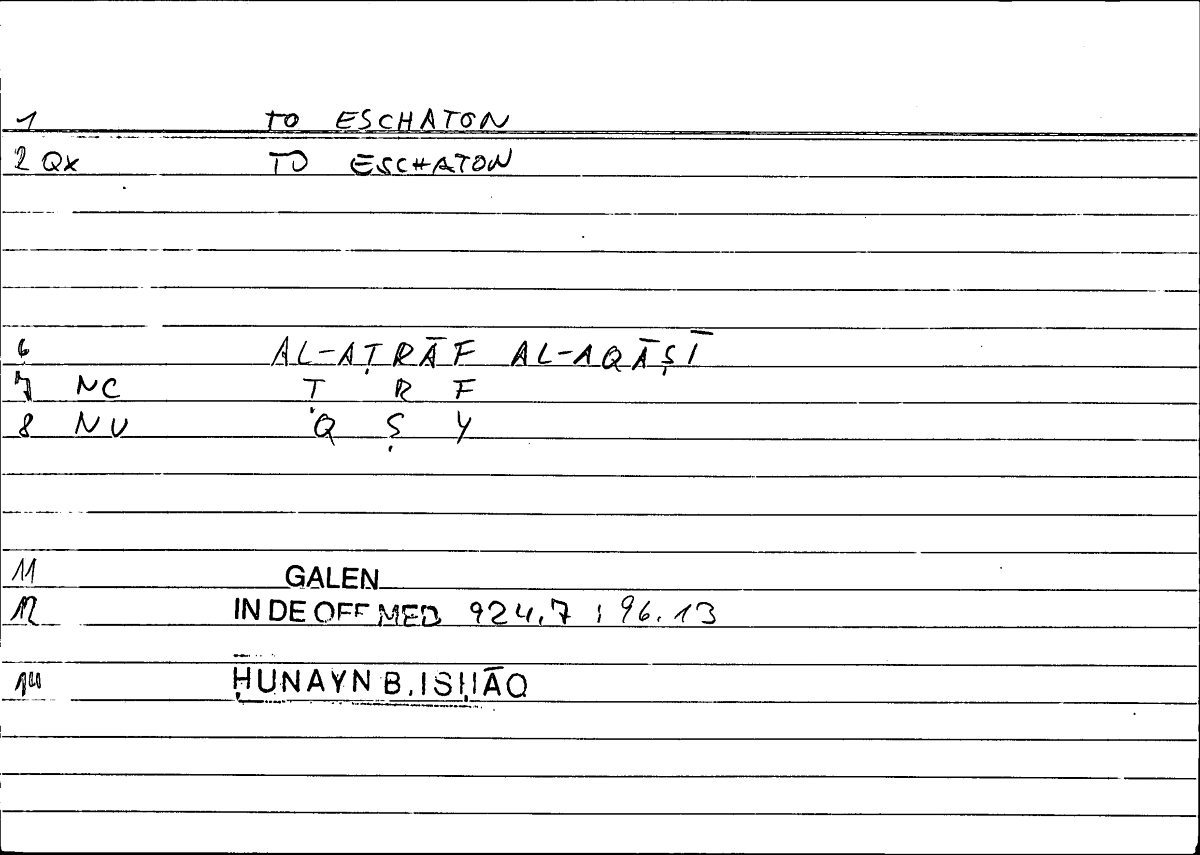 1 TO ESCHATON
2 Qx TO ESCHATON
6 AL-AṬRĀF AL-AQĀṢĪ
7 NC Ṭ R F
8 NU Q Ṣ Y
11 GALEN
12 IN DE OFF MED 924,7 ; 96.13
14 ḤUNAYN B. ISḤĀQ